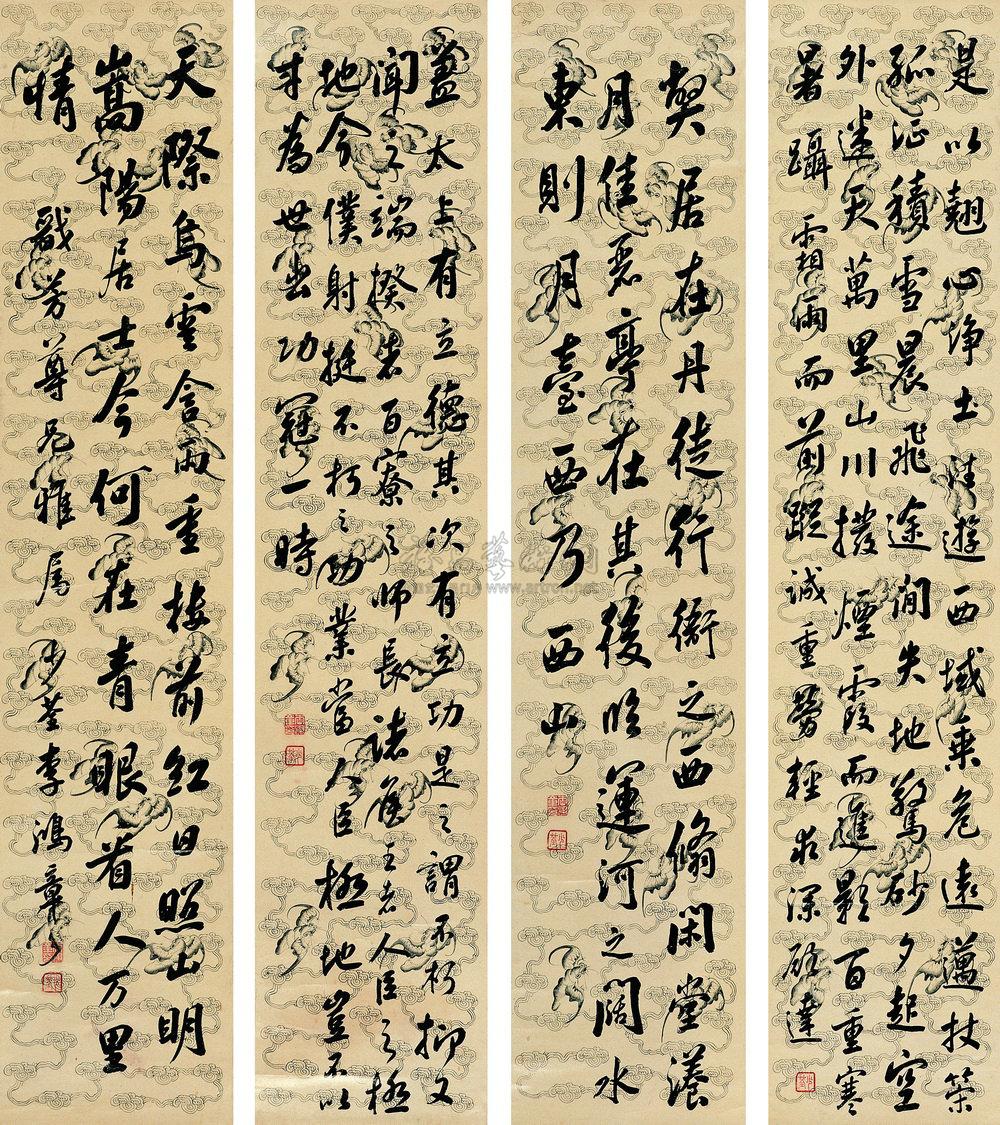 是以翹心淨土往遊西域乘危遠邁杖策
孤征積雪晨飛途間失地驚砂夕起空
外迷天萬里山川撥煙霞而進影百重寒
暑躡霜雨而前蹤誠重勞輕求深達
契居在丹徒行衙之西脩閑堂漾
月佳惡亭在其後臨運河之闊水
東則月臺西乃西山
蓋太上有立德其次有立功是之謂不朽抑又
聞之端揆者百寮之師長諸侯王者人臣之極
地今僕射挺不朽之功業當人臣極地豈不以
才為世出功冠一時
天際烏雲含雨重樓前紅日照山明
嵩陽居士今何在青眼看人万里
情 戩芳尊兄雅属 少荃李鴻章